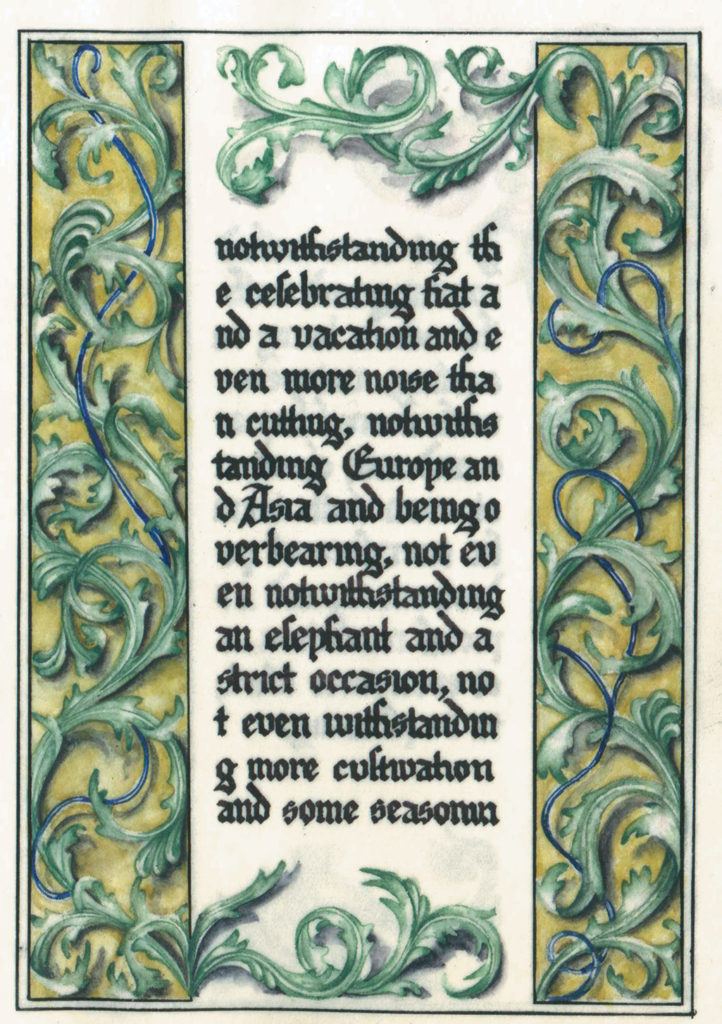 notwithstanding th
e celebrating hat a
nd a vacation and e
ven more noise tha
n cutting, notwiths
tanding Europe an
d Asia and being o
verbearing, not ev
en notwithstanding
an elephant and a
strict occasion, no
t even withstandin
g more cultivation
and some seasonin